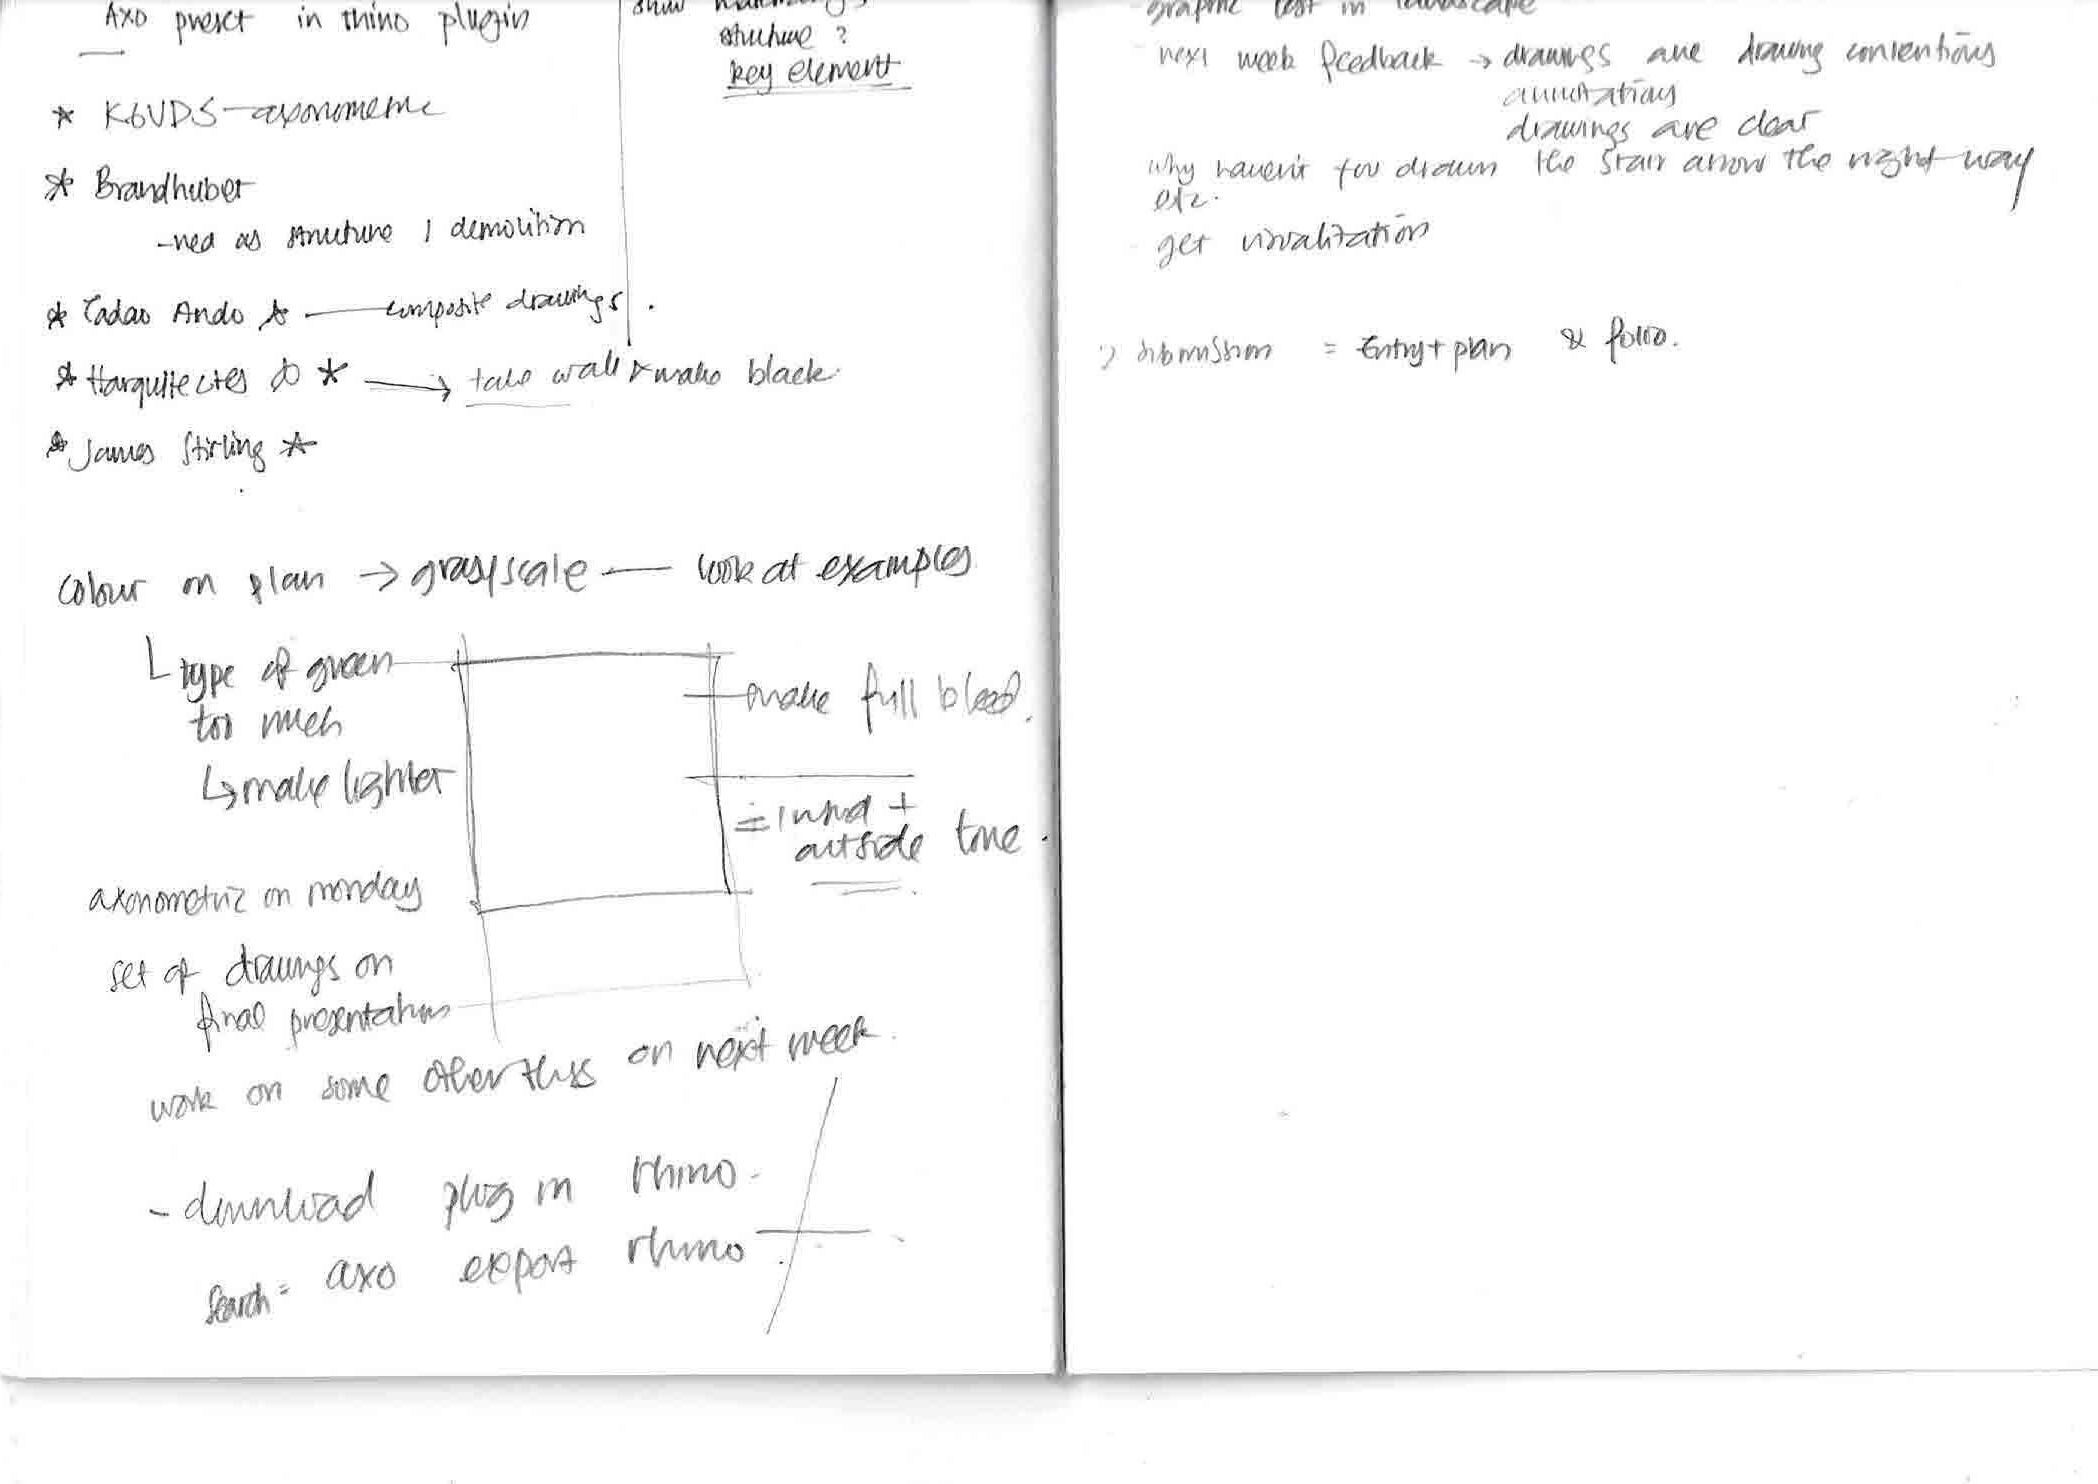 Axo preset in rhino plugin
structure ?
key element
* KGVDS - axonometric
* Brandhuber
- red as structure / demolition
* Tadao Ando * — composite drawings.
* Harquitectes * → take wall & make black.
* James Stirling *
Colour on plan → grayscale — look at examples
type of green
too much
↳ make lighter
make full bleed.
= inside +
outside tone.
axonometric on monday
set of drawings on
final presentation
work on some other things on next week.
- download plug in rhino -
search = axo export rhino
graphic test in landscape
next week feedback → drawings are drawing conventions
annotations
drawings are clear
why haven't you drawn the stair arrow the right way
etc.
- get visualization
submission = Entry + plan & folio.